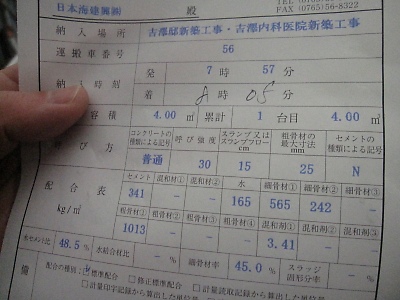 日本海建興㈱ 殿
FAX (0765)56-8322
納入場所 吉澤邸新築工事・吉澤内科医院新築工事
運搬車番号 56
納入時刻 発 7時57分
着 8時05分
容積 4.00㎥ 累計 1台目 4.00㎥
呼び方 コンクリートの種類による記号 呼び強度 スランプ又はスランプフロー cm 粗骨材の最大寸法 mm セメントの種類による記号
普通 30 15 25 N
配合表 kg/㎥
セメント 混和材① 混和材② 水 細骨材① 細骨材② 細骨材③
341 － － 165 565 242 －
粗骨材① 粗骨材② 粗骨材③ 粗骨材④ 混和剤① 混和剤② 混和剤③
1013 － － － 3.41 － －
水セメント比 48.5 % 水結合材比 － % 細骨材率 45.0 % スラッジ固形分率 － %
備 配合の種別: 標準配合 □修正標準配合
□計量印字記録から算出した単位量